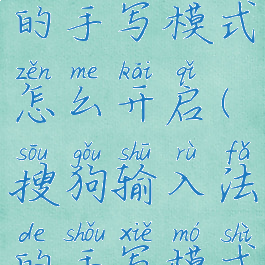 的手写模式
zěn me kāi qǐ
怎么开启(
sōu gǒu shū rù fǎ
搜狗输入法
de shǒu xiě mó shì
的手写模式